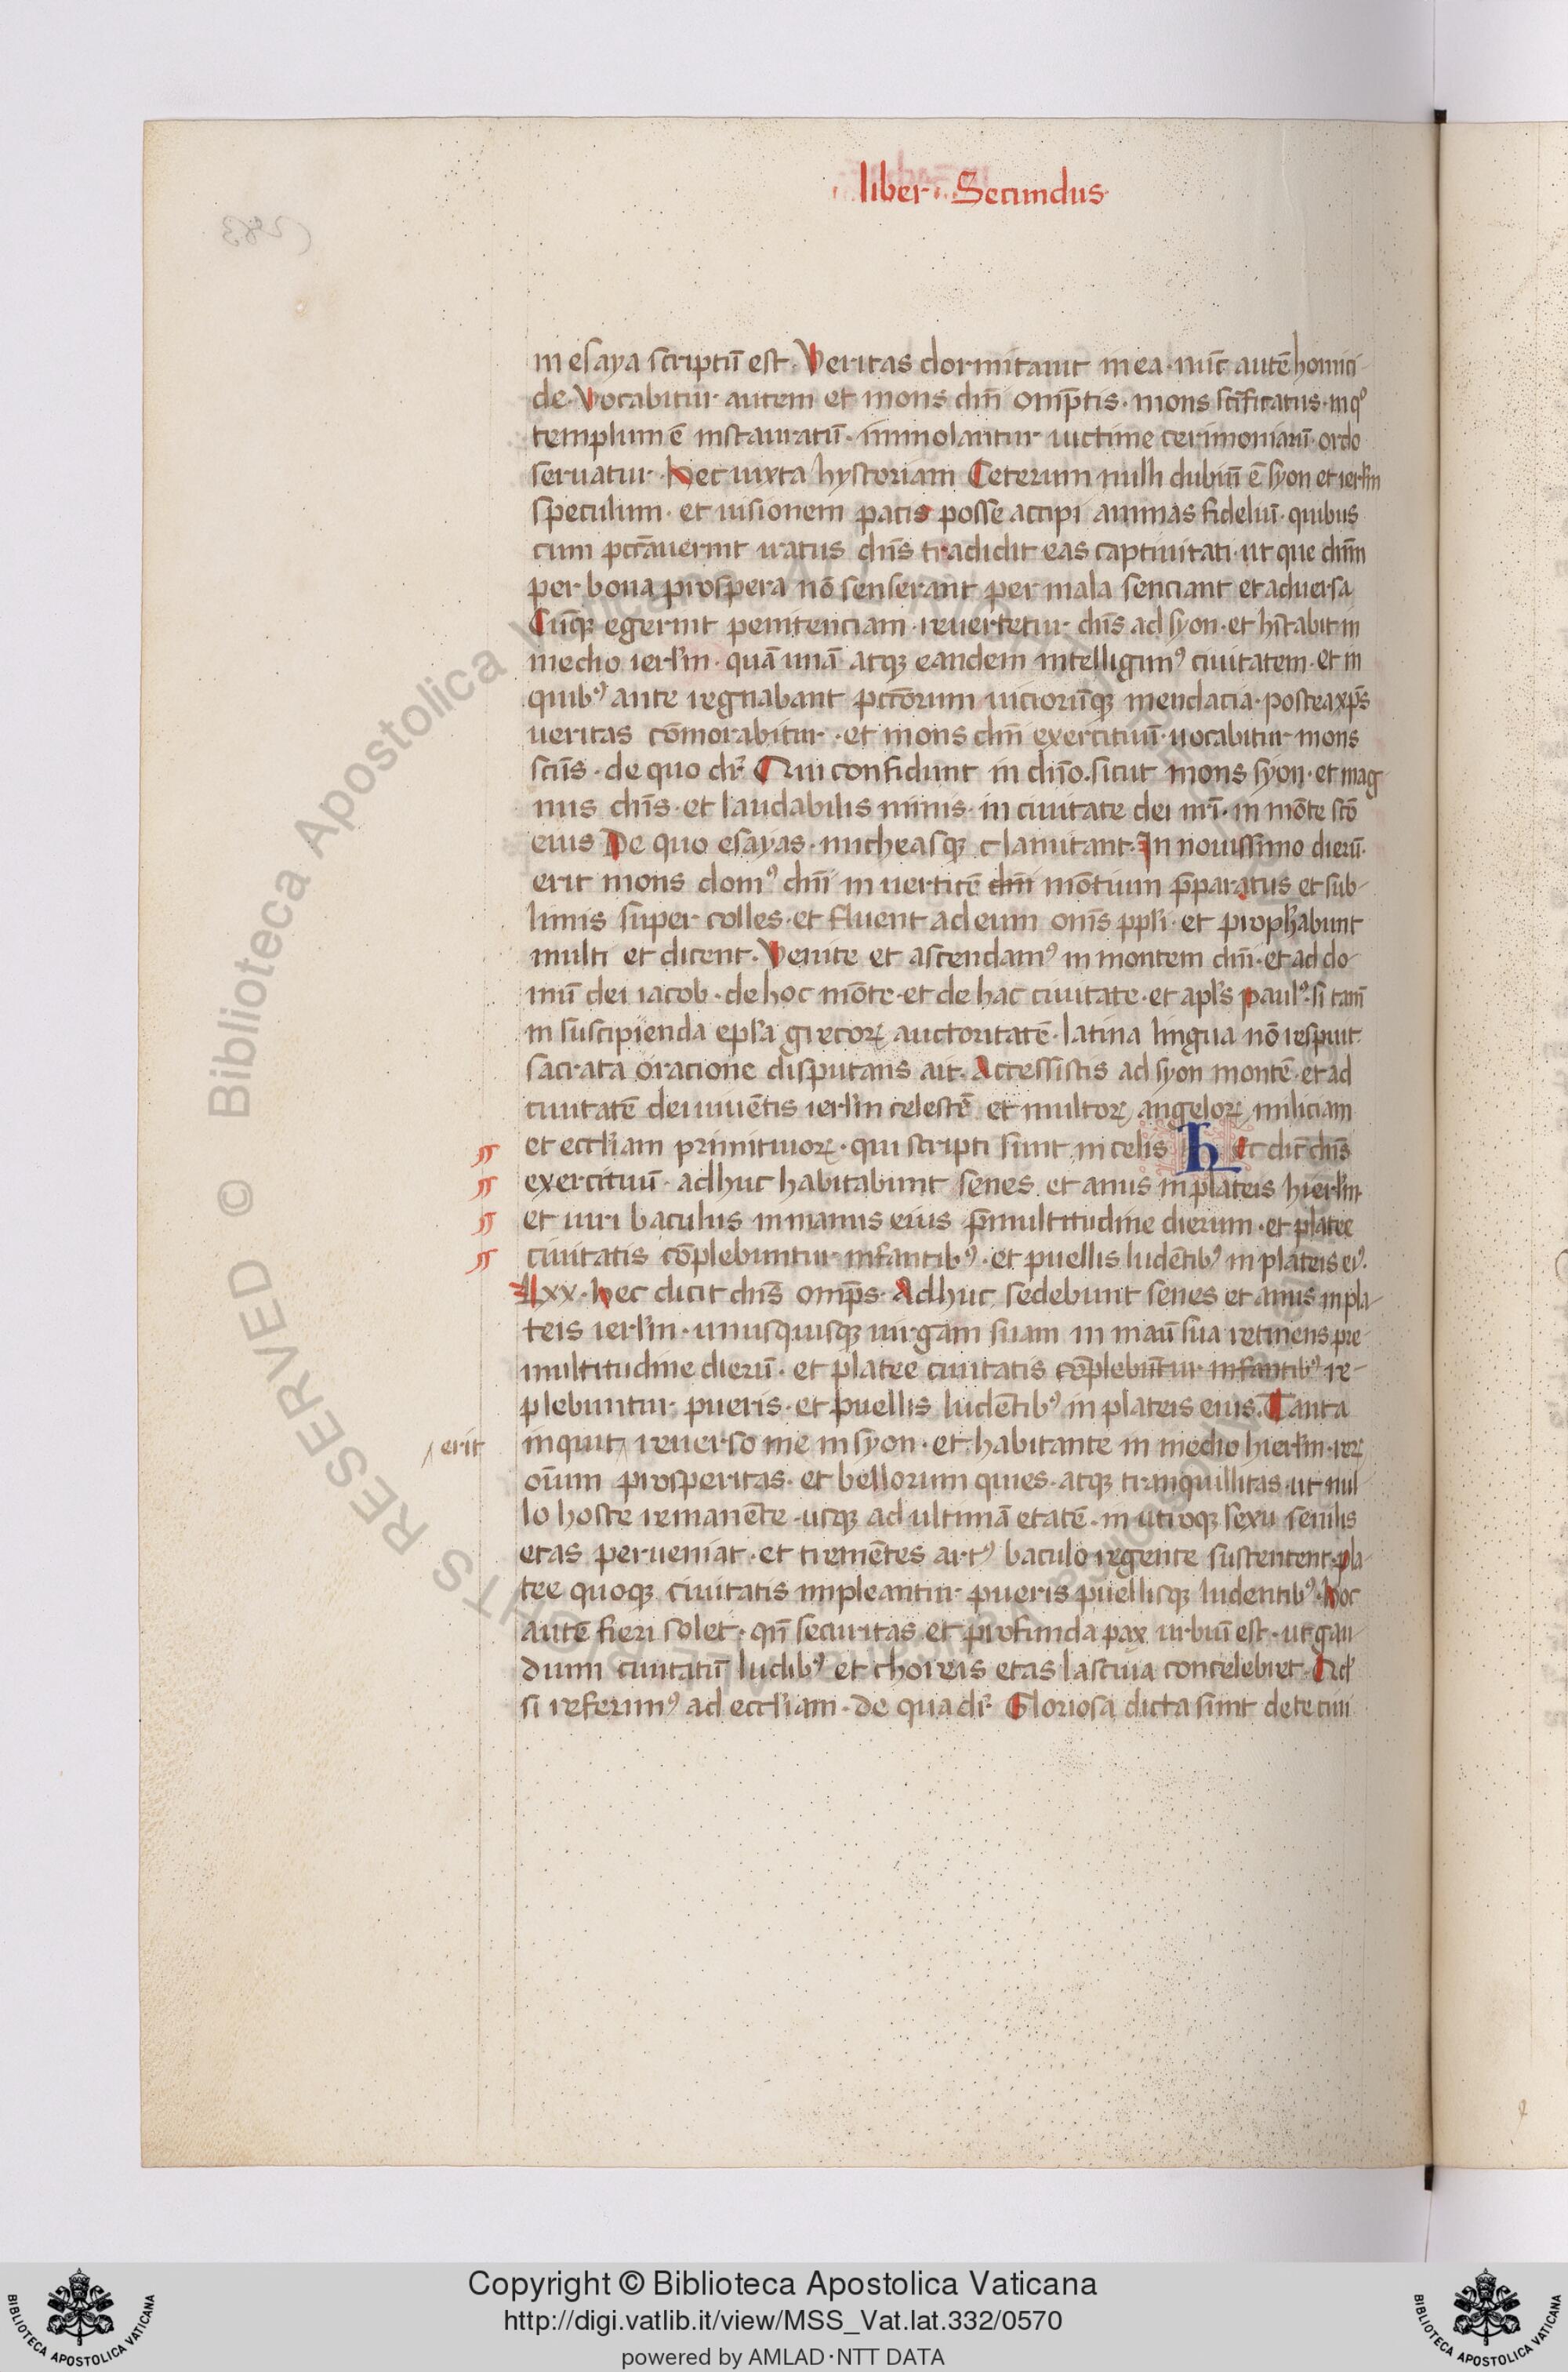 liber · Secundus·
in esaya scriptū est. Veritas dormitauit in ea· nūc autē homici-
de. Vocabitur autem et mons dnī omp̄tis· mons scīficatus· in qͦ
templum ē instauratū· immolantur uictime cerimoniarū· ordo
seruatur. hec iuxta hystoriam Ceterum nulli dubiū ē syon et ierl̄m
speculum· et uisionem pacis posse accipi animas fideliū· quibus
cum pccāuerint iratus dn̄s tradidit eas captiuitati· ut que dn̄m
per bona prospera nō senserant per mala senciant et aduersa
Cūqꝫ egerint penitenciam· reuertetur dn̄s ad syon· et hītabit in
medio ierl̄m· quā unā atqꝫ eandem intelligimꝰ ciuitatem· et in
quibꝰ ante regnabant pctōrum uiciorūqꝫ mendacia· postea xp̄s
ueritas cōmorabitur· et mons dnī exercituū· uocabitur mons
scūs· de quo dr̄. Qui confidunt in dn̄o. sicut mons syon· et mag
nus dn̄s· et laudabilis nimis· in ciuitate dei nrī· in mōte scō
eius De quo esayas· micheasqꝫ clamitant. In nouissimo dierū·
erit mons domꝰ dnī in uerticē dnī mōtium p̄paratus et sub-
limis super colles· et fluent ad eum om̄s ppl̄i· et prophabunt
multi et dicent. Venite et ascendamꝰ in montem dnī· et ad do-
mū dei iacob· de hoc mōte· et de hac ciuitate· et apl̄s paulꝰ· si tam̄
in suscipienda epl̄a grecoꝝ auctoritatē· latina lingua nō respuit·
sacrata oracione disputans ait. Accessistis ad syon montē· et ad
ciuitatē dei uiuētis ierl̄m celestē et multoꝝ angeloꝝ miliciam
et eccl̄iam primitiuoꝝ· qui scripti sunt in celis hec dic̄ dn̄s
exercituū· adhuc habitabunt senes et anus in plateis hierl̄m·
et uiri baculus in manus eius p̄ multitudine dierum· et platee
ciuitatis cōplebuntur infantibꝰ· et puellis ludētibꝰ in plateis eiꝰ.
lxx· hec dicit dn̄s omp̄s. Adhuc sedebunt senes et anus in pla-
teis ierl̄m· unusquisqꝫ uirgam suam in manū sua retinens pre
multitudine dierū· et platee ciuitatis cōplebūtur infantibꝰ re-
plebuntur pueris· et puellis ludētibꝰ in plateis eius. Tanta
erit
inquit reuerso me in syon· et habitante in medio hierl̄m· reꝝ
oīum prosperitas· et bellorum quies· atqꝫ tranquillitas· ut nul
lo hoste remanēte· usqꝫ ad ultimā etatē· in utroqꝫ sexu senilis
etas perueniat· et tremētes artꝰ baculo regente sustentent· pla-
tee quoqꝫ ciuitatis impleantur pueris puellisqꝫ ludentibꝰ. hoc
autē fieri solet· qn̄ securitas et profunda pax urbiū est· ut gau-
dum ciuitatū ludibꝰ et choreis etas lasciua concelebret. Qd'
si referimꝰ ad eccl̄iam· de qua dr̄ Gloriosa dicta sunt de te ciui
Copyright © Biblioteca Apostolica Vaticana
http://digi.vatlib.it/view/MSS_Vat.lat.332/0570
powered by AMLAD·NTT DATA